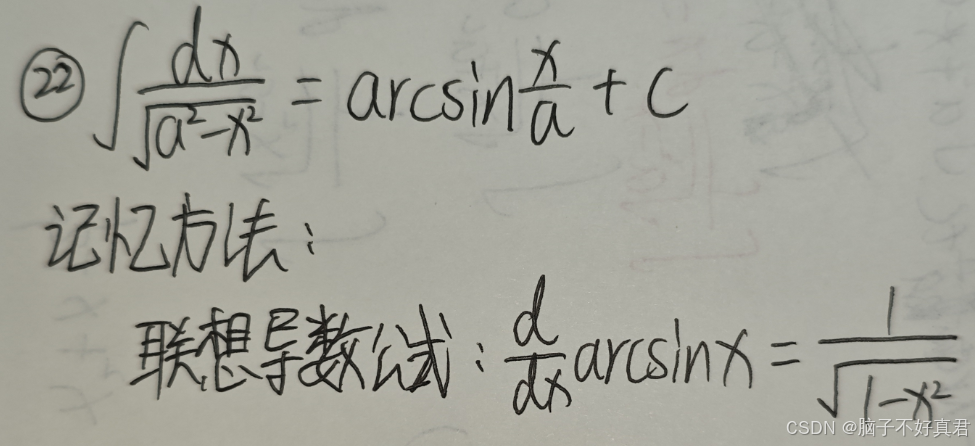 ㉒ ∫ dx/√(a²-x²) = arcsin x/a + C
记忆方法:
联想导数公式: d/dx arcsinx = 1/√(1-x²)
CSDN @脑子不好真君